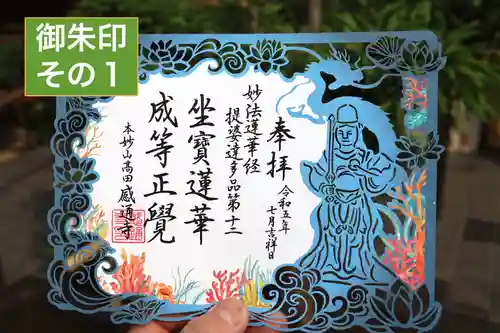 御朱印
その1
奉拝
令和五年
七月吉祥日
妙法蓮華経
提婆達多品第十二
坐寳蓮華
成等正覺
本妙山高田
感通寺